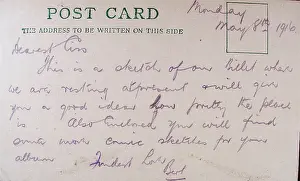 POST CARD
THE ADDRESS TO BE WRITTEN ON THIS SIDE
Monday
May 8th 1916
Dearest
This is a sketch of our billet where
we are resting at present & will give
you a good idea how pretty the place
is. Also Enclosed you will find
some more comic sketches for your
album
Fondest Love
Bert